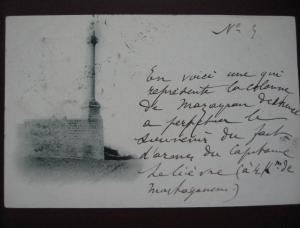 No 4
En voici une qui
représente la colonne
de Mazagran destinée
a perpétuer le
souvenir du fait
d'armes du Capitaine
Lelièvre (à 4 Km de
Mostaganem)